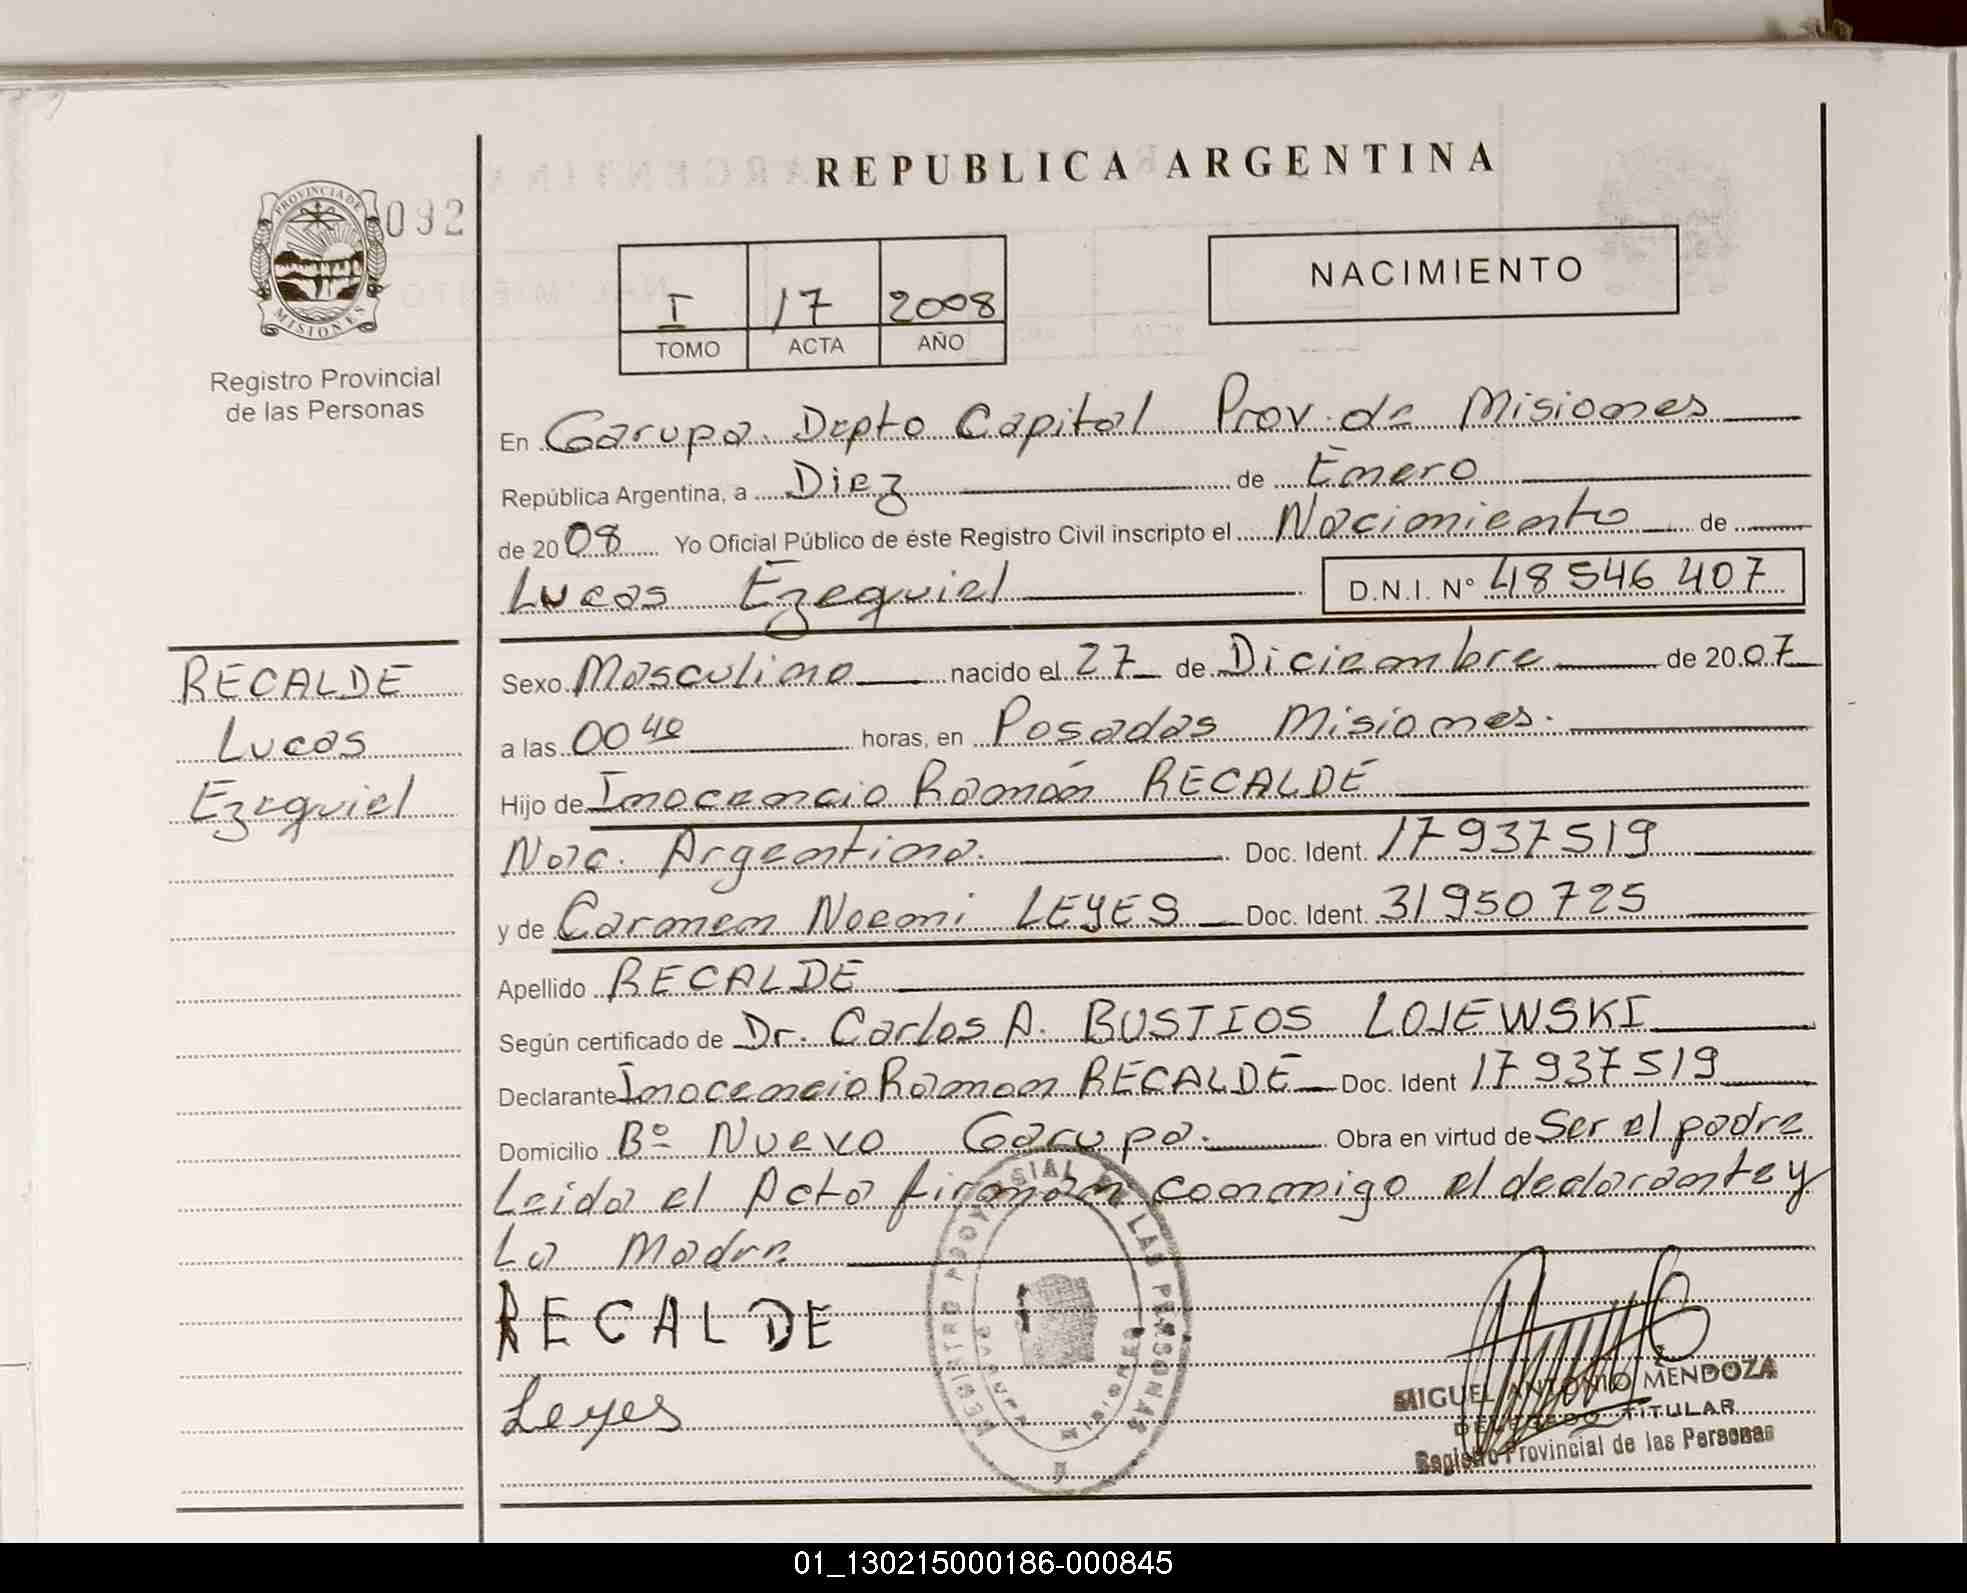 REPUBLICA ARGENTINA
PROVINCIA DE
MISIONES
092
Registro Provincial
de las Personas
I 17 2008
TOMO ACTA AÑO
NACIMIENTO
En Garupa Depto Capital Prov. de Misiones
República Argentina, a Diez de Enero
de 2008 Yo Oficial Público de éste Registro Civil inscripto el Nacimiento de
Lucas Ezequiel D.N.I. N° 48 546 407
RECALDE
Lucas
Ezequiel
Sexo Masculino nacido el 27 de Diciembre de 2007
a las 00 40 horas, en Posadas Misiones.
Hijo de Inocencio Ramón RECALDE
Nac. Argentina. Doc. Ident. 17 937 519
y de Carmen Noemi LEYES Doc. Ident. 31 950 725
Apellido RECALDE
Según certificado de Dr. Carlos A. BUSTIOS LOJEWSKI
Declarante Inocencio Ramon RECALDE Doc. Ident 17 937 519
Domicilio Bº Nuevo Garupa. Obra en virtud de Ser el padre
Leida el Acta firman conmigo el declarante y
La Madre
RECALDE
Leyes
LAS PERSONAS
MISIONES
MIGUEL ANTONIO MENDOZA
DELEGADO TITULAR
Registro Provincial de las Personas
01_130215000186-000845